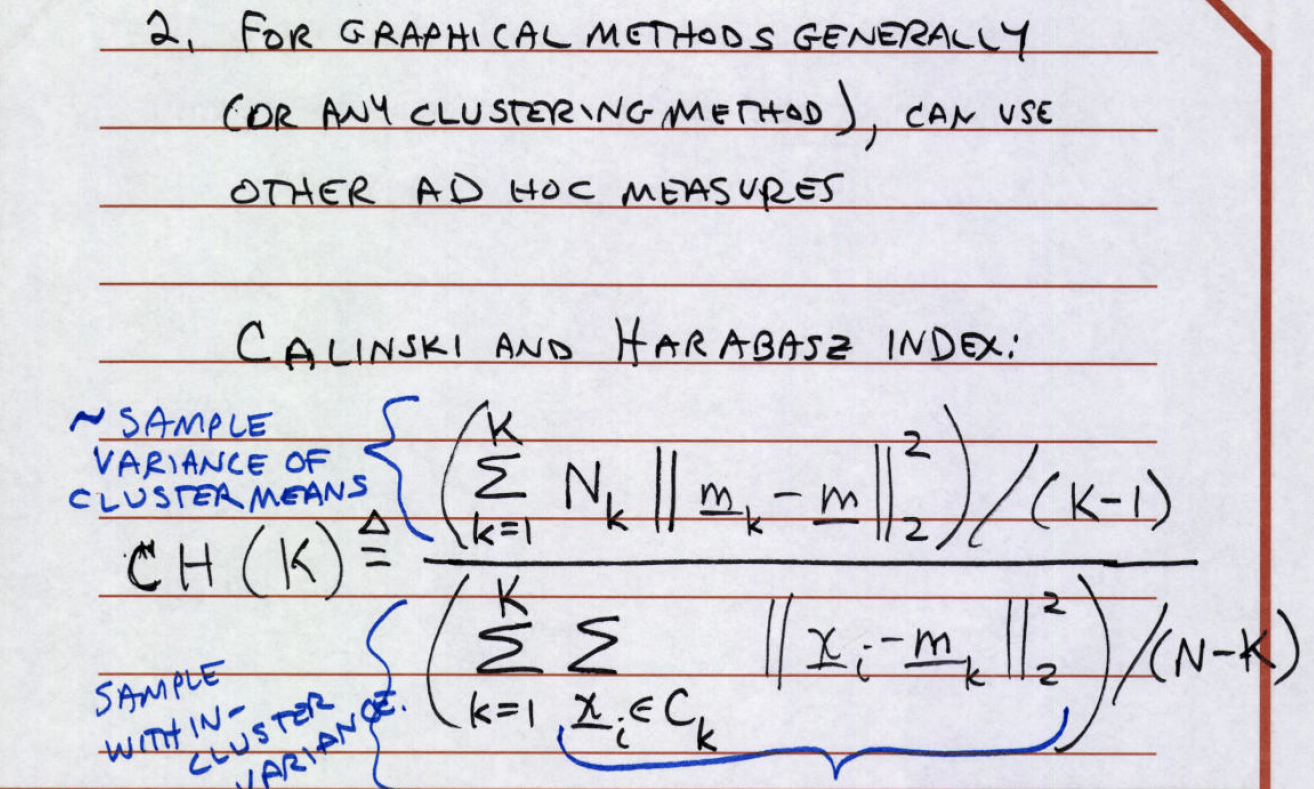 2. FOR GRAPHICAL METHODS GENERALLY
(OR ANY CLUSTERING METHOD), CAN USE
OTHER AD HOC MEASURES
CALINSKI AND HARABASZ INDEX:
~ SAMPLE
VARIANCE OF
CLUSTER MEANS
CH(K) ≜
(∑_{k=1}^{K} N_k ||m_k - m||_2^2) / (K-1)
(∑_{k=1}^{K} ∑_{x_i ∈ C_k} ||x_i - m_k||_2^2) / (N-K)
SAMPLE
WITHIN-
CLUSTER
VARIANCE.